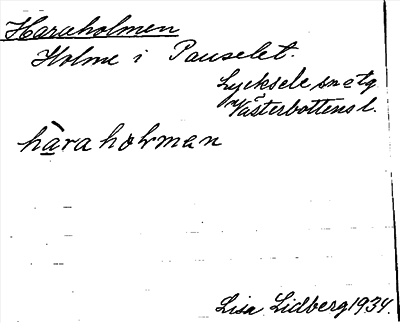 Haraholmen
Holme i Pauselet.
Lycksele sn o tg
Västerbottens l.
hàraholman
Lisa Lidberg 1934.